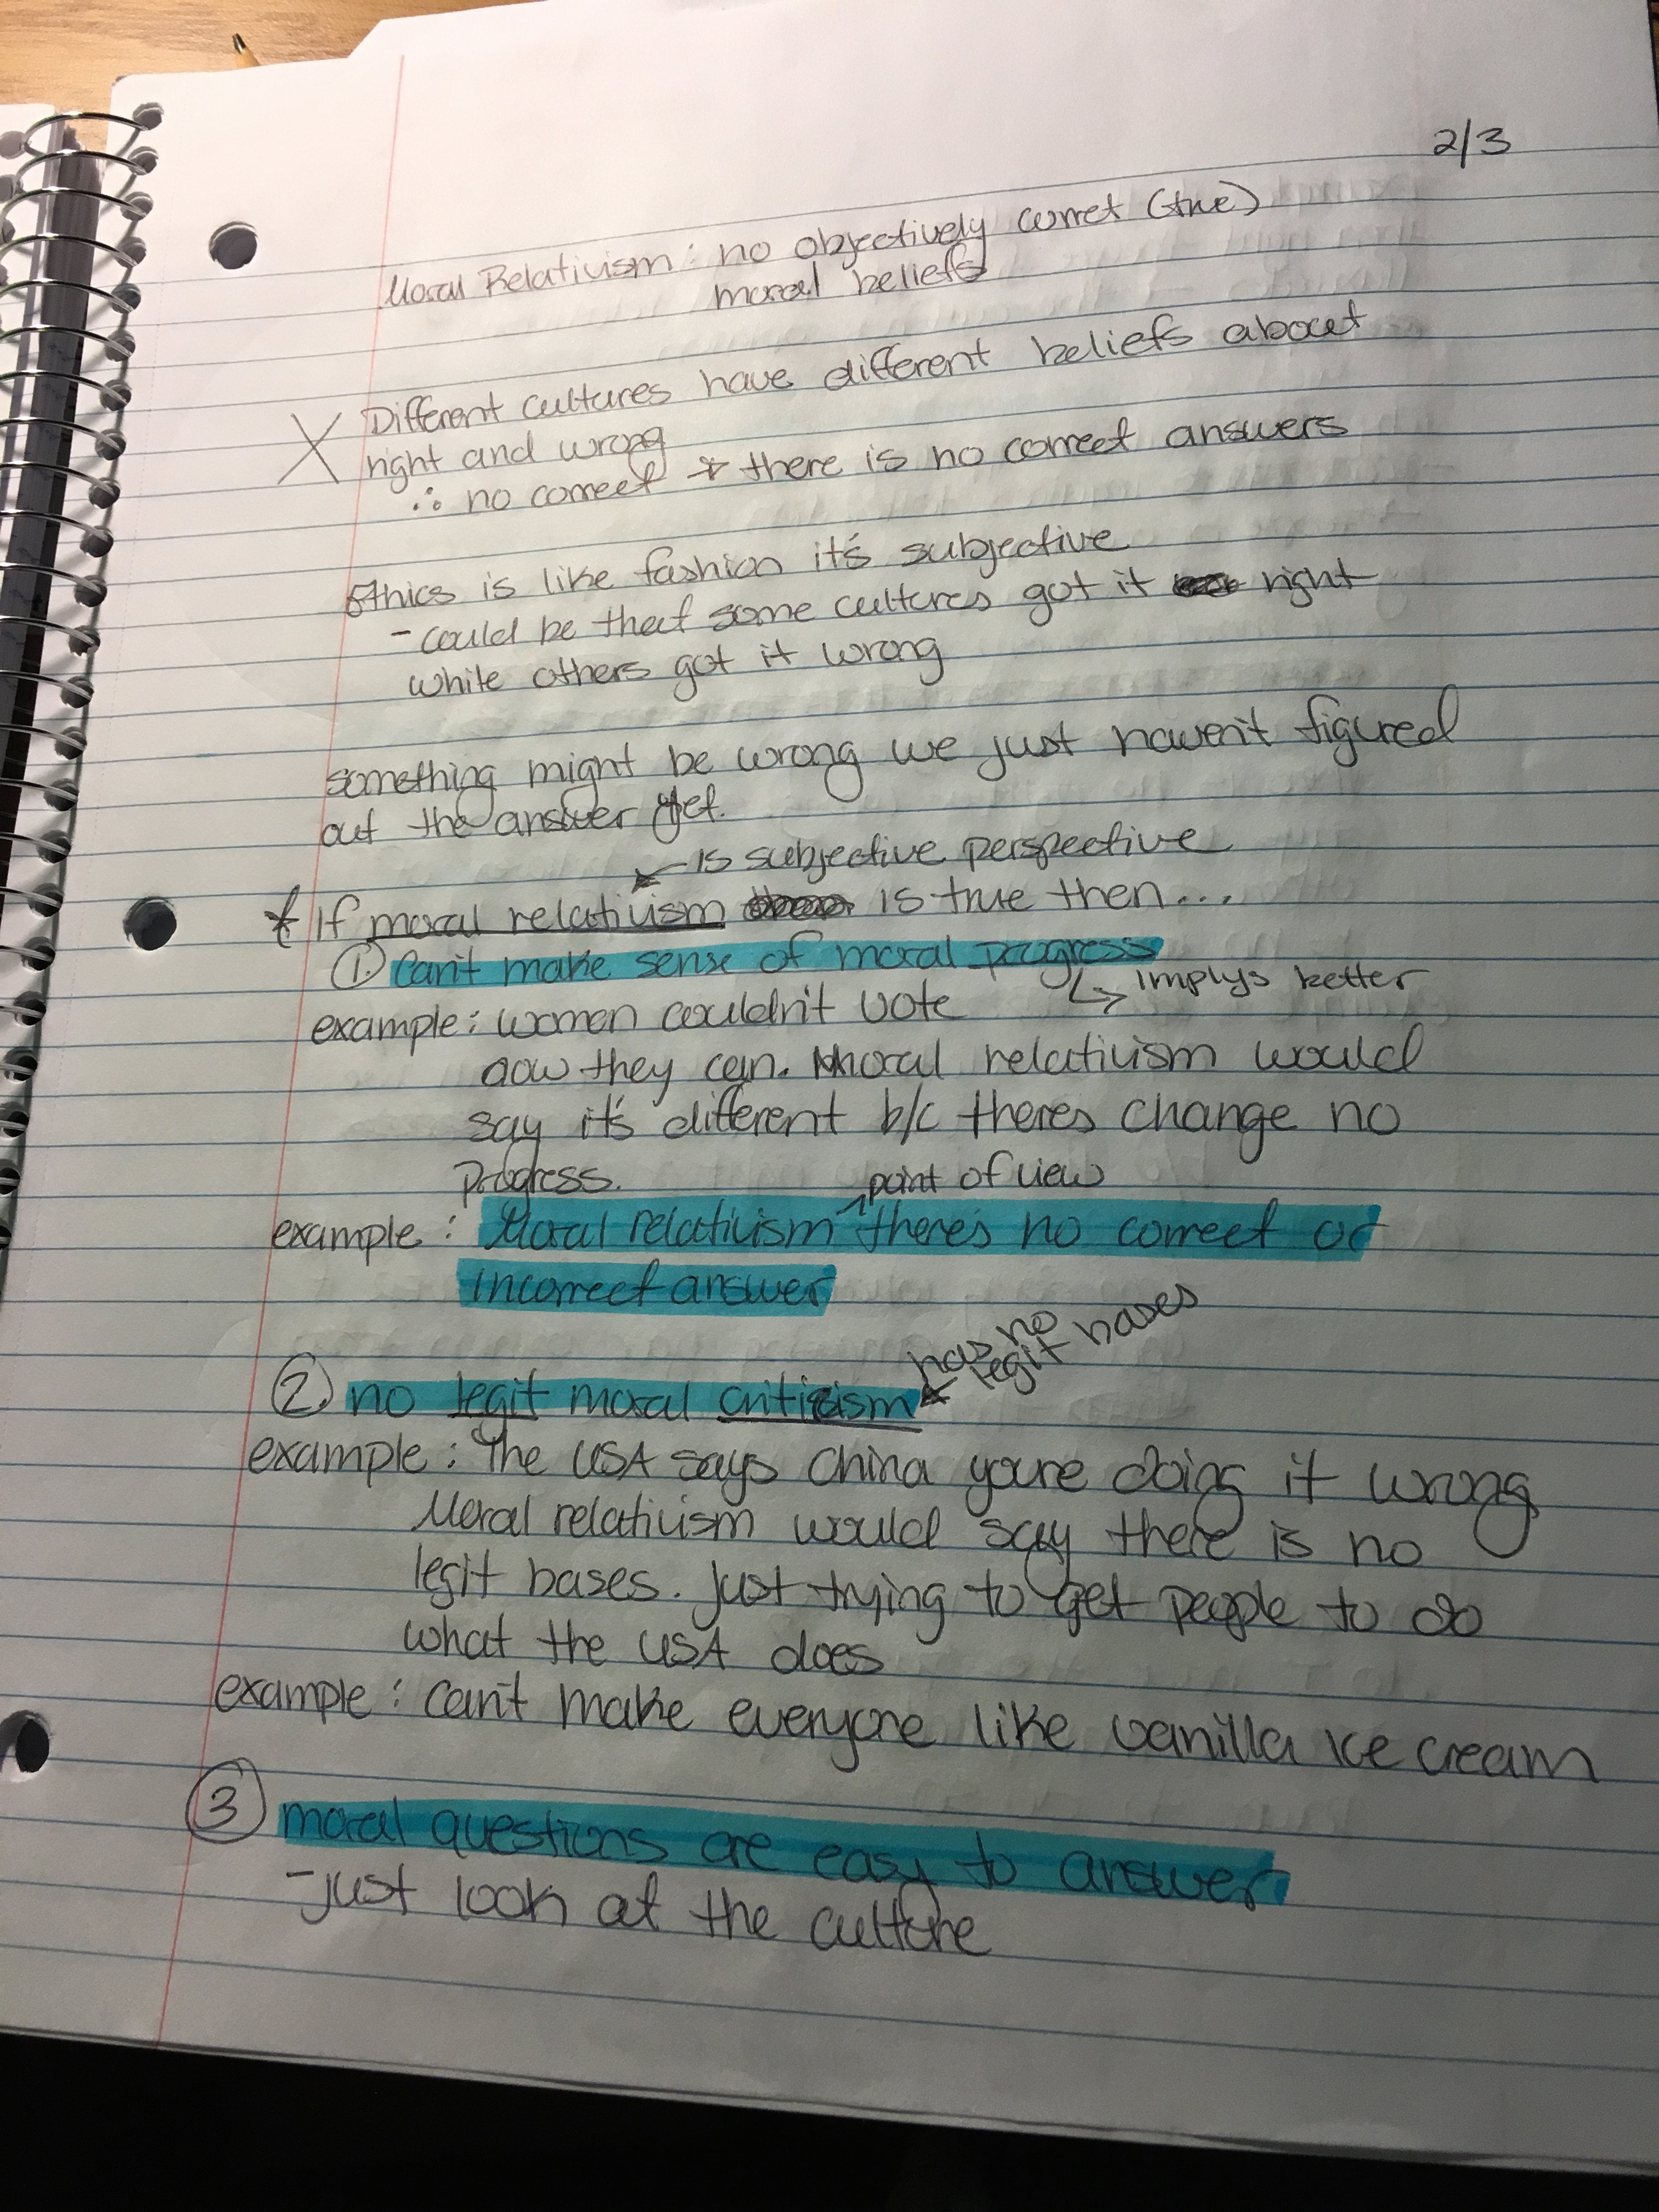 2/3
Moral Relativism: no objectively correct (true)
moral beliefs
X Different cultures have different beliefs about
right and wrong
∴ no correct * there is no correct answers
Ethics is like fashion it's subjective
- could be that some cultures got it right
while others got it wrong
something might be wrong we just haven't figured
out the answer yet.
is subjective perspective
* If moral relativism is true then...
① can't make sense of moral progress
↳ implys better
example: women couldn't vote
now they can. Moral relativism would
say it's different b/c theres change no
progress.
point of view
example: Moral relativism ^ there's no correct or
incorrect answer
has no
legit bases
② no legit moral criticism
example: The USA says China youre doing it wrong
Moral relativism would say there is no
legit bases. just trying to get people to do
what the USA does
example: can't make everyone like vanilla ice cream
③ moral questions are easy to answer
- just look at the culture